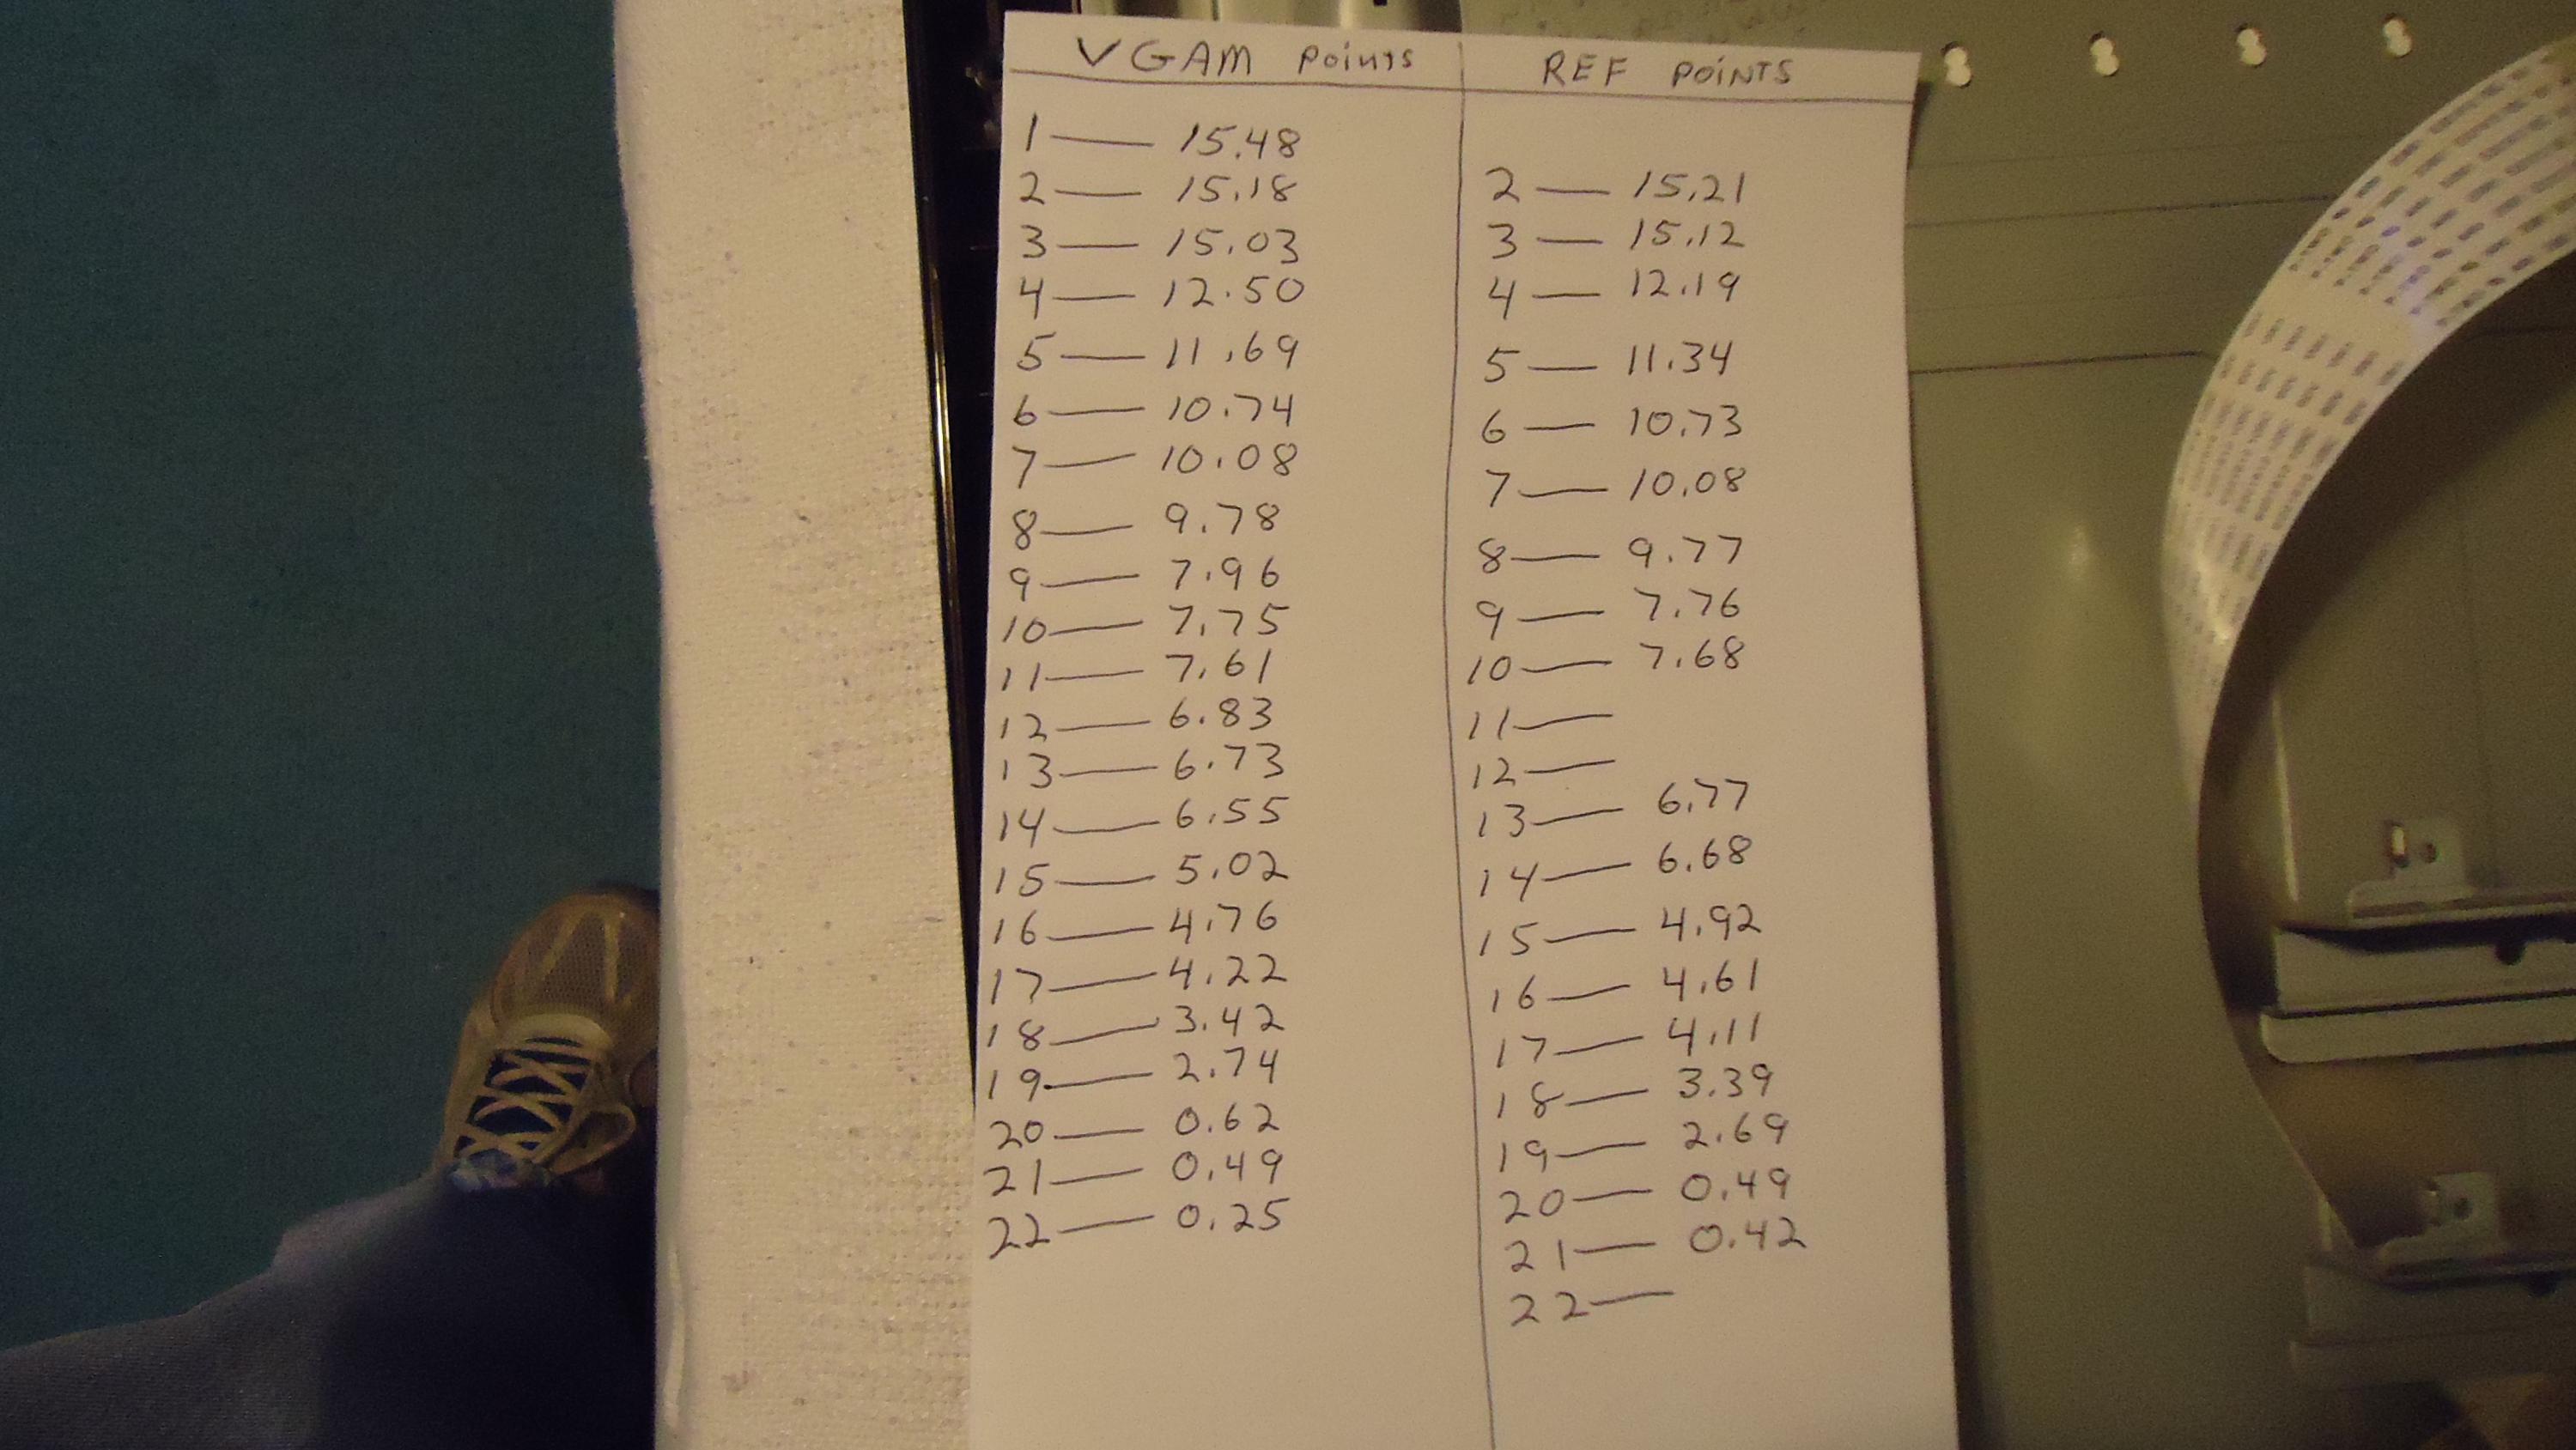 VGAM Points REF POINTS
1 — 15.48
2 — 15.18 2 — 15.21
3 — 15.03 3 — 15.12
4 — 12.50 4 — 12.19
5 — 11.69 5 — 11.34
6 — 10.74 6 — 10.73
7 — 10.08 7 — 10.08
8 — 9.78 8 — 9.77
9 — 7.96 9 — 7.76
10 — 7.75 10 — 7.68
11 — 7.61 11 —
12 — 6.83 12 —
13 — 6.73 13 — 6.77
14 — 6.55 14 — 6.68
15 — 5.02 15 — 4.92
16 — 4.76 16 — 4.61
17 — 4.22 17 — 4.11
18 — 3.42 18 — 3.39
19 — 2.74 19 — 2.69
20 — 0.62 20 — 0.49
21 — 0.49 21 — 0.42
22 — 0.25 22 —